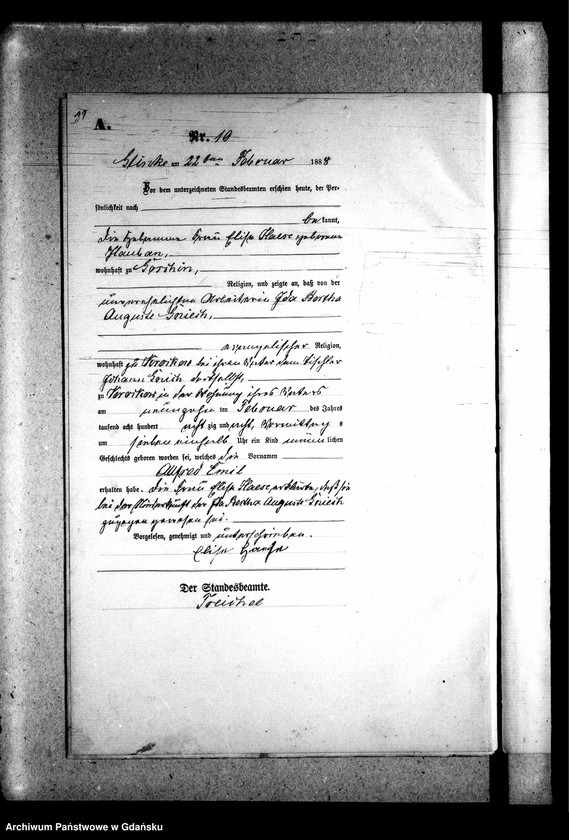 A.
Nr. 10
am 22ten Februar 1888
Vor dem unterzeichneten Standesbeamten erschien heute, der Per-
sönlichkeit nach
be kannt,
die Hebamme Frau Elise Haase geborene
wohnhaft zu
Religion, und zeigte an, daß von der
unverehelichten Arbeiterin Ida Bertha
Auguste
evangelischer Religion,
wohnhaft zu bei ihrem Vater dem Tischler
Johann daselbst,
zu in der Wohnung ihres Vaters
am neunzehn ten Februar des Jahres
tausend acht hundert acht zig und acht, Vormittag s
um sieben einhalb Uhr ein Kind männ lichen
Geschlechts geboren worden sei, welches die Vornamen
Alfred Emil
erhalten habe. Die Frau Elise Haase erklärte, daß sie
bei der Niederkunft der Ida Bertha Auguste
zugegen gewesen sei.
Vorgelesen, genehmigt und unterschrieben.
Elise Haase
Der Standesbeamte.
Treichel
Archiwum Państwowe w Gdańsku